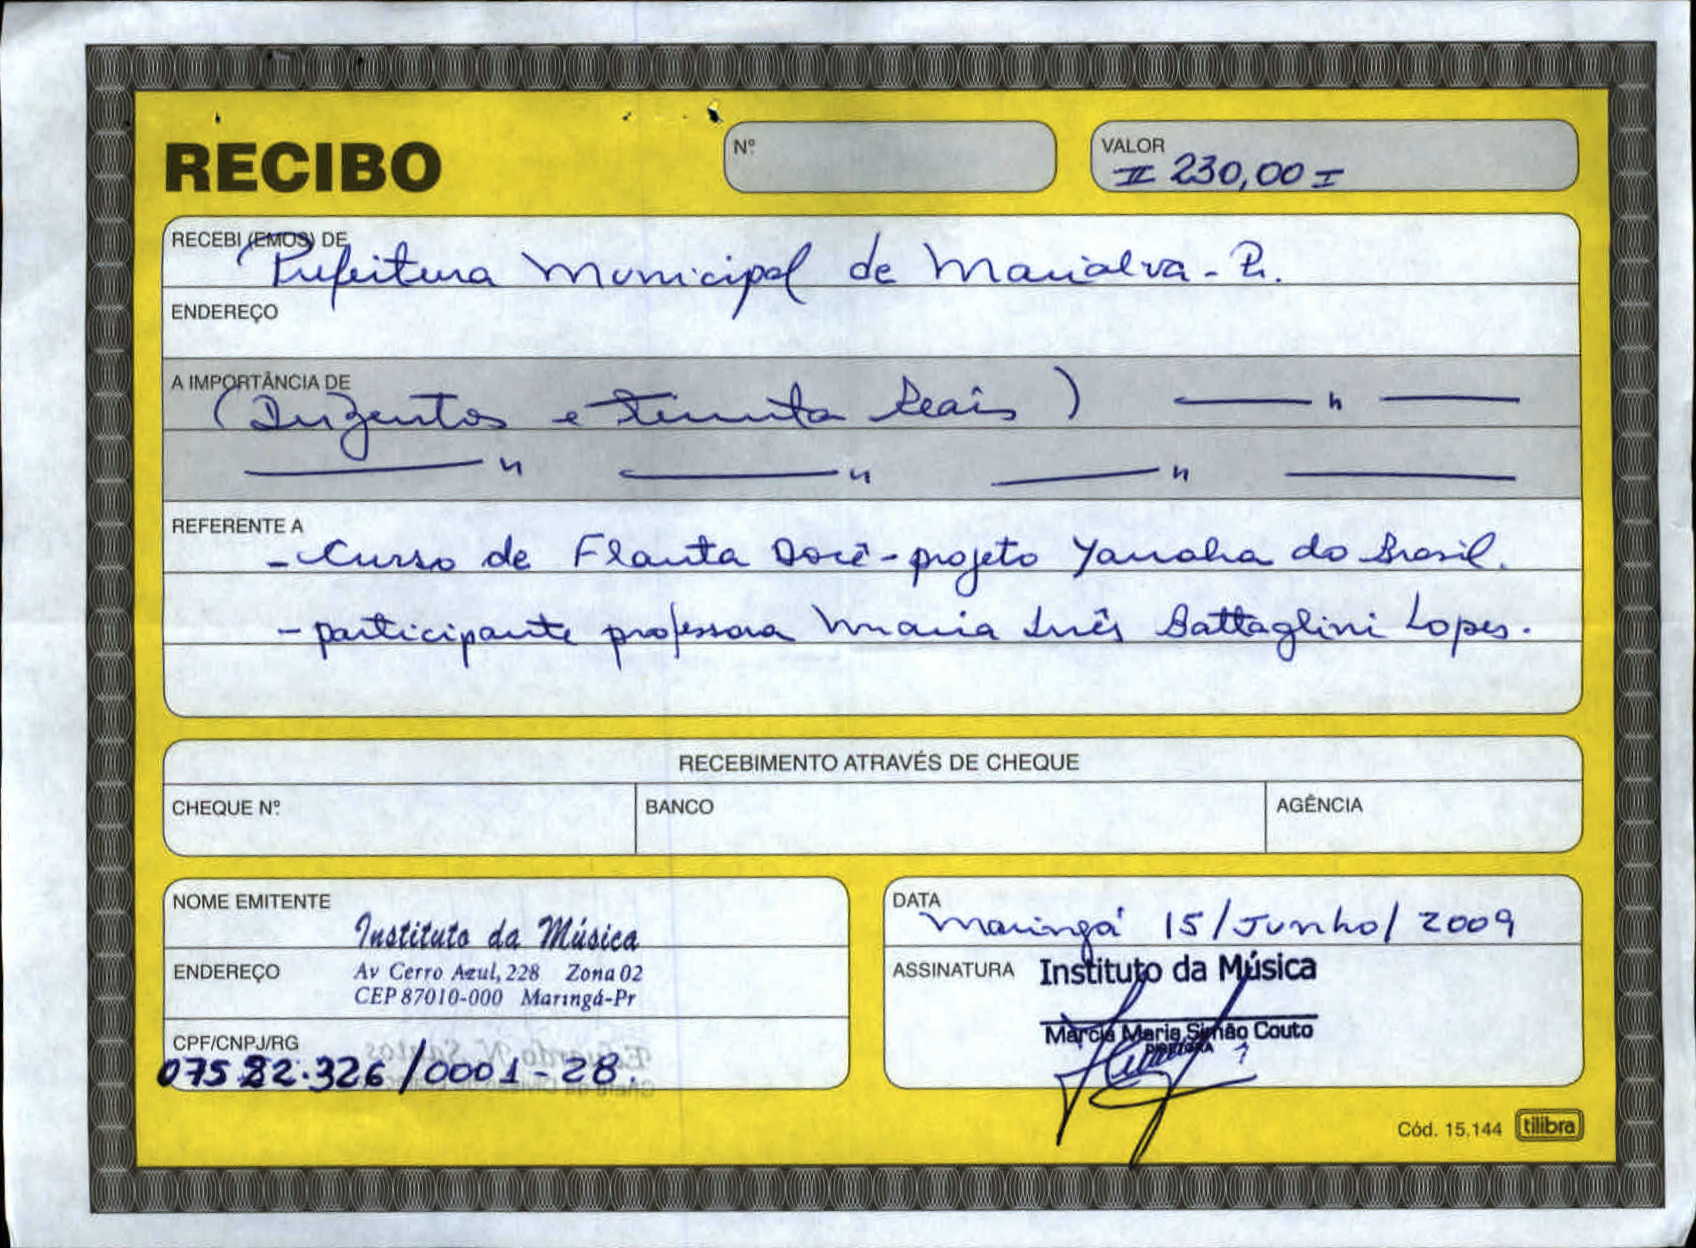 RECIBO
Nº
VALOR
230,00
RECEBI (EMOS) DE
Prefeitura Municipal de Marialva - Pr.
ENDEREÇO
A IMPORTÂNCIA DE
(Duzentos e trinta Reais)
REFERENTE A
- Curso de Flauta Doce - projeto Yamaha do Brasil.
- participante professora Maria Inês Battaglini Lopes.
RECEBIMENTO ATRAVÉS DE CHEQUE
CHEQUE Nº
BANCO
AGÊNCIA
NOME EMITENTE
Instituto da Música
ENDEREÇO
Av Cerro Azul, 228 Zona 02
CEP 87010-000 Maringá-Pr
CPF/CNPJ/RG
07582.326/0001-28.
DATA
Maringá 15/Junho/2009
ASSINATURA
Instituto da Música
Marcia Maria Simão Couto
DIRETORA
Cód. 15.144
tilibra